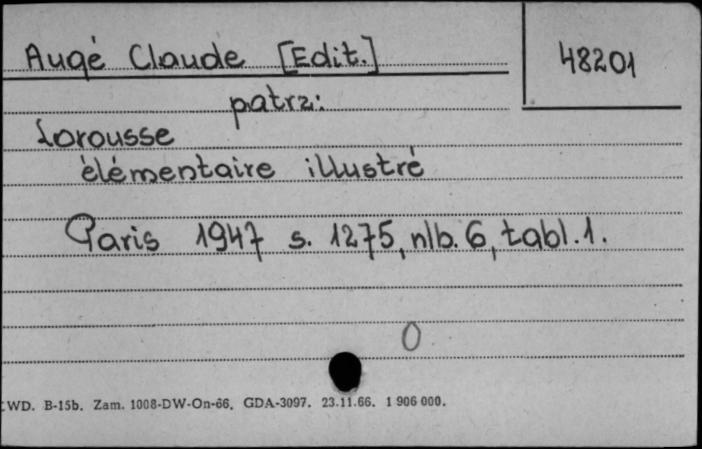 Augé Claude [Edit.]
48201
patrz:
Larousse
élémentaire illustré
Paris 1947 s. 1275, nlb. 6, tabl. 1.
0
CWD. B-15b. Zam. 1008-DW-On-66. GDA-3097. 23.11.66. 1 906 000.